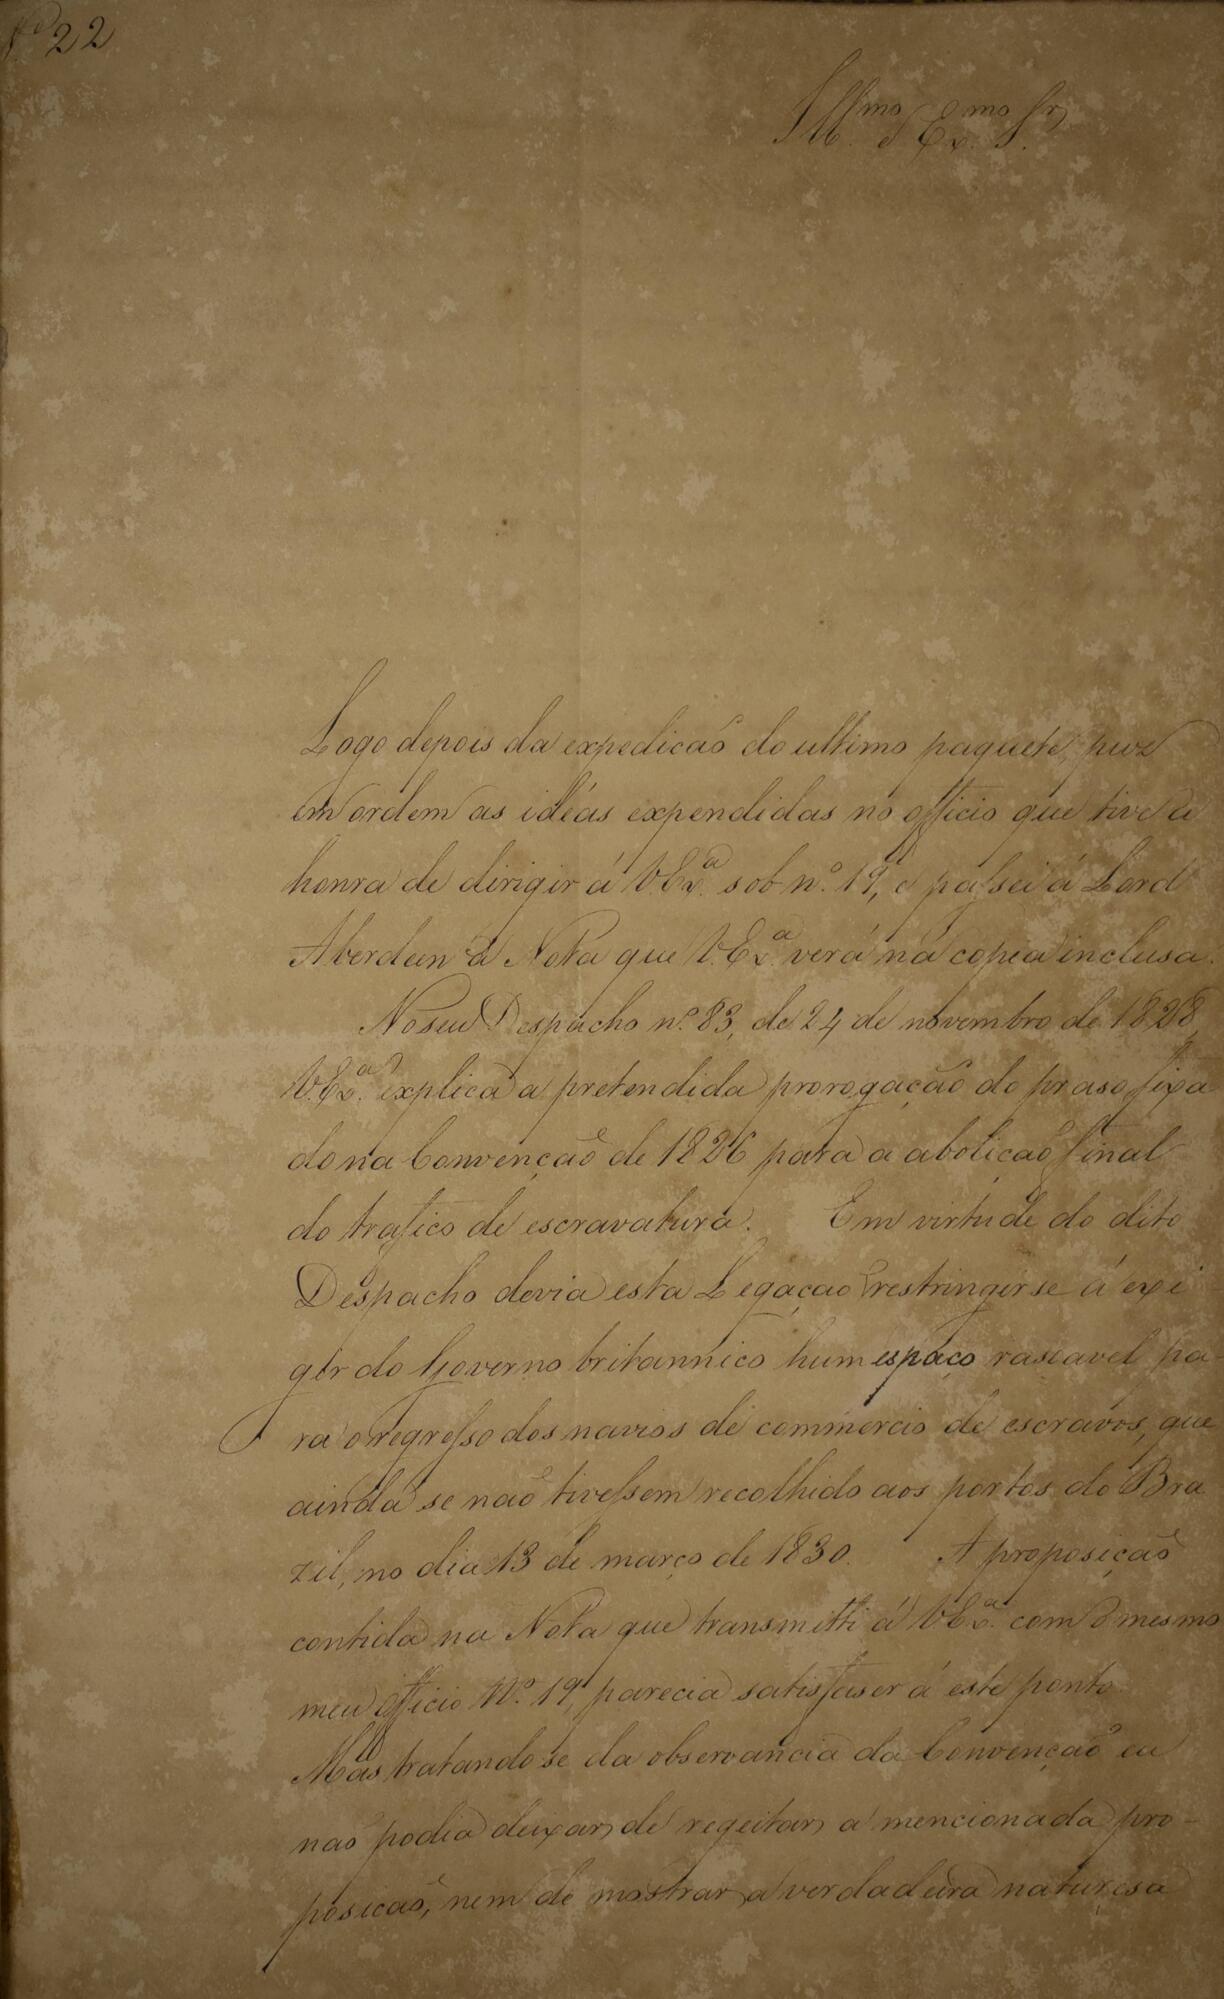 Nº 22
Illmo e Exmo Sr.
Logo depois da expedicaõ do ultimo paquete, puz
em ordem as idéas expendidas no officio que tive a
honra de dirigir á V.Exª. sob nº. 19, e passei á Lord
Aberdeen a Nota que V.Exª. verá na copea inclusa.
No seu Despacho nº. 83, de 24 de novembro de 1828,
V.Exª. explica a pretendida prorogação do praso fixa
do na Convençaõ de 1826 para a aboliçaõ final
do trafico de escravatura. Em virtude do dito
Despacho devia esta Legaçao restringir se á exi
gir do Governo britannico hum espaço rasoavel pa-
ra o regresso dos navios de commercio de escravos, que
ainda se naõ tivessem recolhido aos portos do Bra
zil, no dia 13 de março de 1830. A proposiçaõ
contida na Nota que transmitti á V.Exª. com o mesmo
meu officio Nº. 19, parecia satisfaser á este ponto
Mas tratando se da observancia da Convençaõ eu
naõ podia deixar de regeitar a mencionada pro-
posicaõ, nem de mostrar a verdadeira naturesa